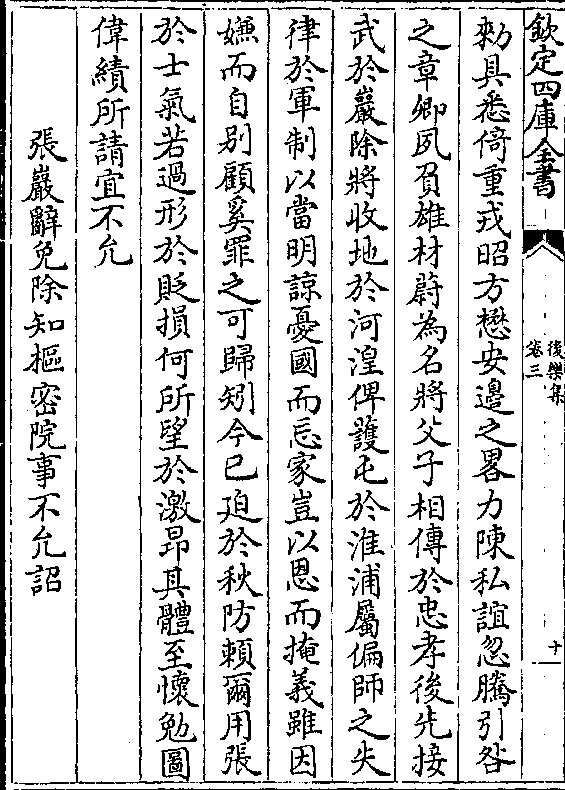 欽定四庫全書
後樂集
卷三
十
勑具悉倚重戎昭方懋安邊之畧力陳私誼忽騰引咎
之章卿夙負雄材蔚為名將父子相傳於忠孝後先接
武於巖除將收地於河湟俾護屯於淮浦屬偏師之失
律於軍制以當明諒憂國而忘家豈以恩而掩義雖因
嫌而自别顧奚罪之可歸矧今已廹於秋防頼爾用張
於士氣若過形於貶損何所望於激昂其體至懷勉圖
偉績所請宜不允
張巖辭免除知樞密院事不允詔